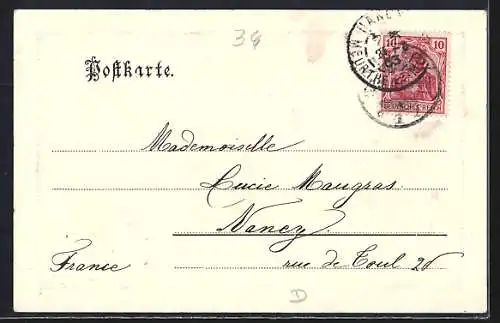 3G
Postkarte.
10 10
DEUTSCHES REICH
NANCY
MEURTHE
Mademoiselle
Lucie Maugras
Nancy
France rue de Toul 26
D